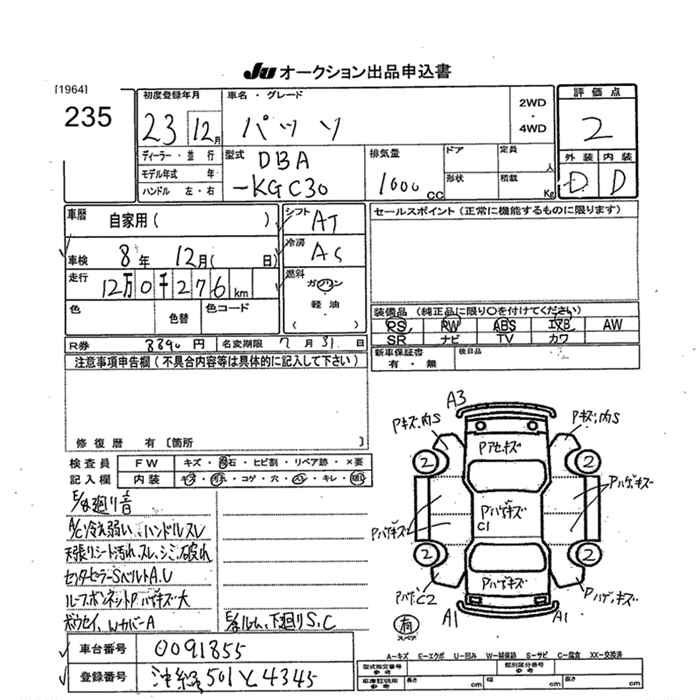 JU オークション出品申込書
[1964]
235
初度登録年月
23 12月
車名・グレード
パッソ
2WD
・
4WD
評価点
2
外装 内装
D D
ディーラー・並行
モデル年式 年
ハンドル 左・右
型式
DBA
-KGC30
排気量
1000 cc
ドア
形状
定員
人
積載
Kg
車歴
自家用( )
車検 8年 12月( 日)
走行
12万0千276km
色
色替
色コード
シフト
AT
冷房
AC
燃料
ガソリン
・
軽油
( )
セールスポイント(正常に機能するものに限ります)
装備品(純正品に限り○を付けてください)
PS PW ABS エアB AW
SR ナビ TV カワ
新車保証書
有・無
後日品
R券 8890円
名変期限 7月31日
注意事項申告欄(不具合内容等は具体的に記入して下さい)
修復歴 有〔箇所 〕
検査員
記入欄
FW キズ・飛石・ヒビ割・リペア跡・×要
内装 キズ・汚れ・コゲ・穴・スレ・キレ・
E/g廻り音
A/C冷え弱い、ハンドルスレ
天張りシート汚れ、スレ、シミ、破れ
センタセラーSベルトA.U
ルーフボンネットPハゲキズ大
ボウセイ、WカバーA
E/gルム、下廻りS,C
A3
Pキズ,内S
Pキズ,内S
Pアセキズ
2
2
Pハゲキズ
Pハゲキズ
C1
Pハゲキズ
2
2
Pハゲキズ
PハゲC2
Pハゲキズ
A1
A1
有
スペア
A―キズ E―エクボ U―凹み W―補修跡 S―サビ C―腐食 XX―交換済
車台番号 0091855
登録番号 沖縄501と4345
型式指定番号
参考
類別区分番号
参考
車庫証明用
参考
長さ cm
幅 cm
高さ cm